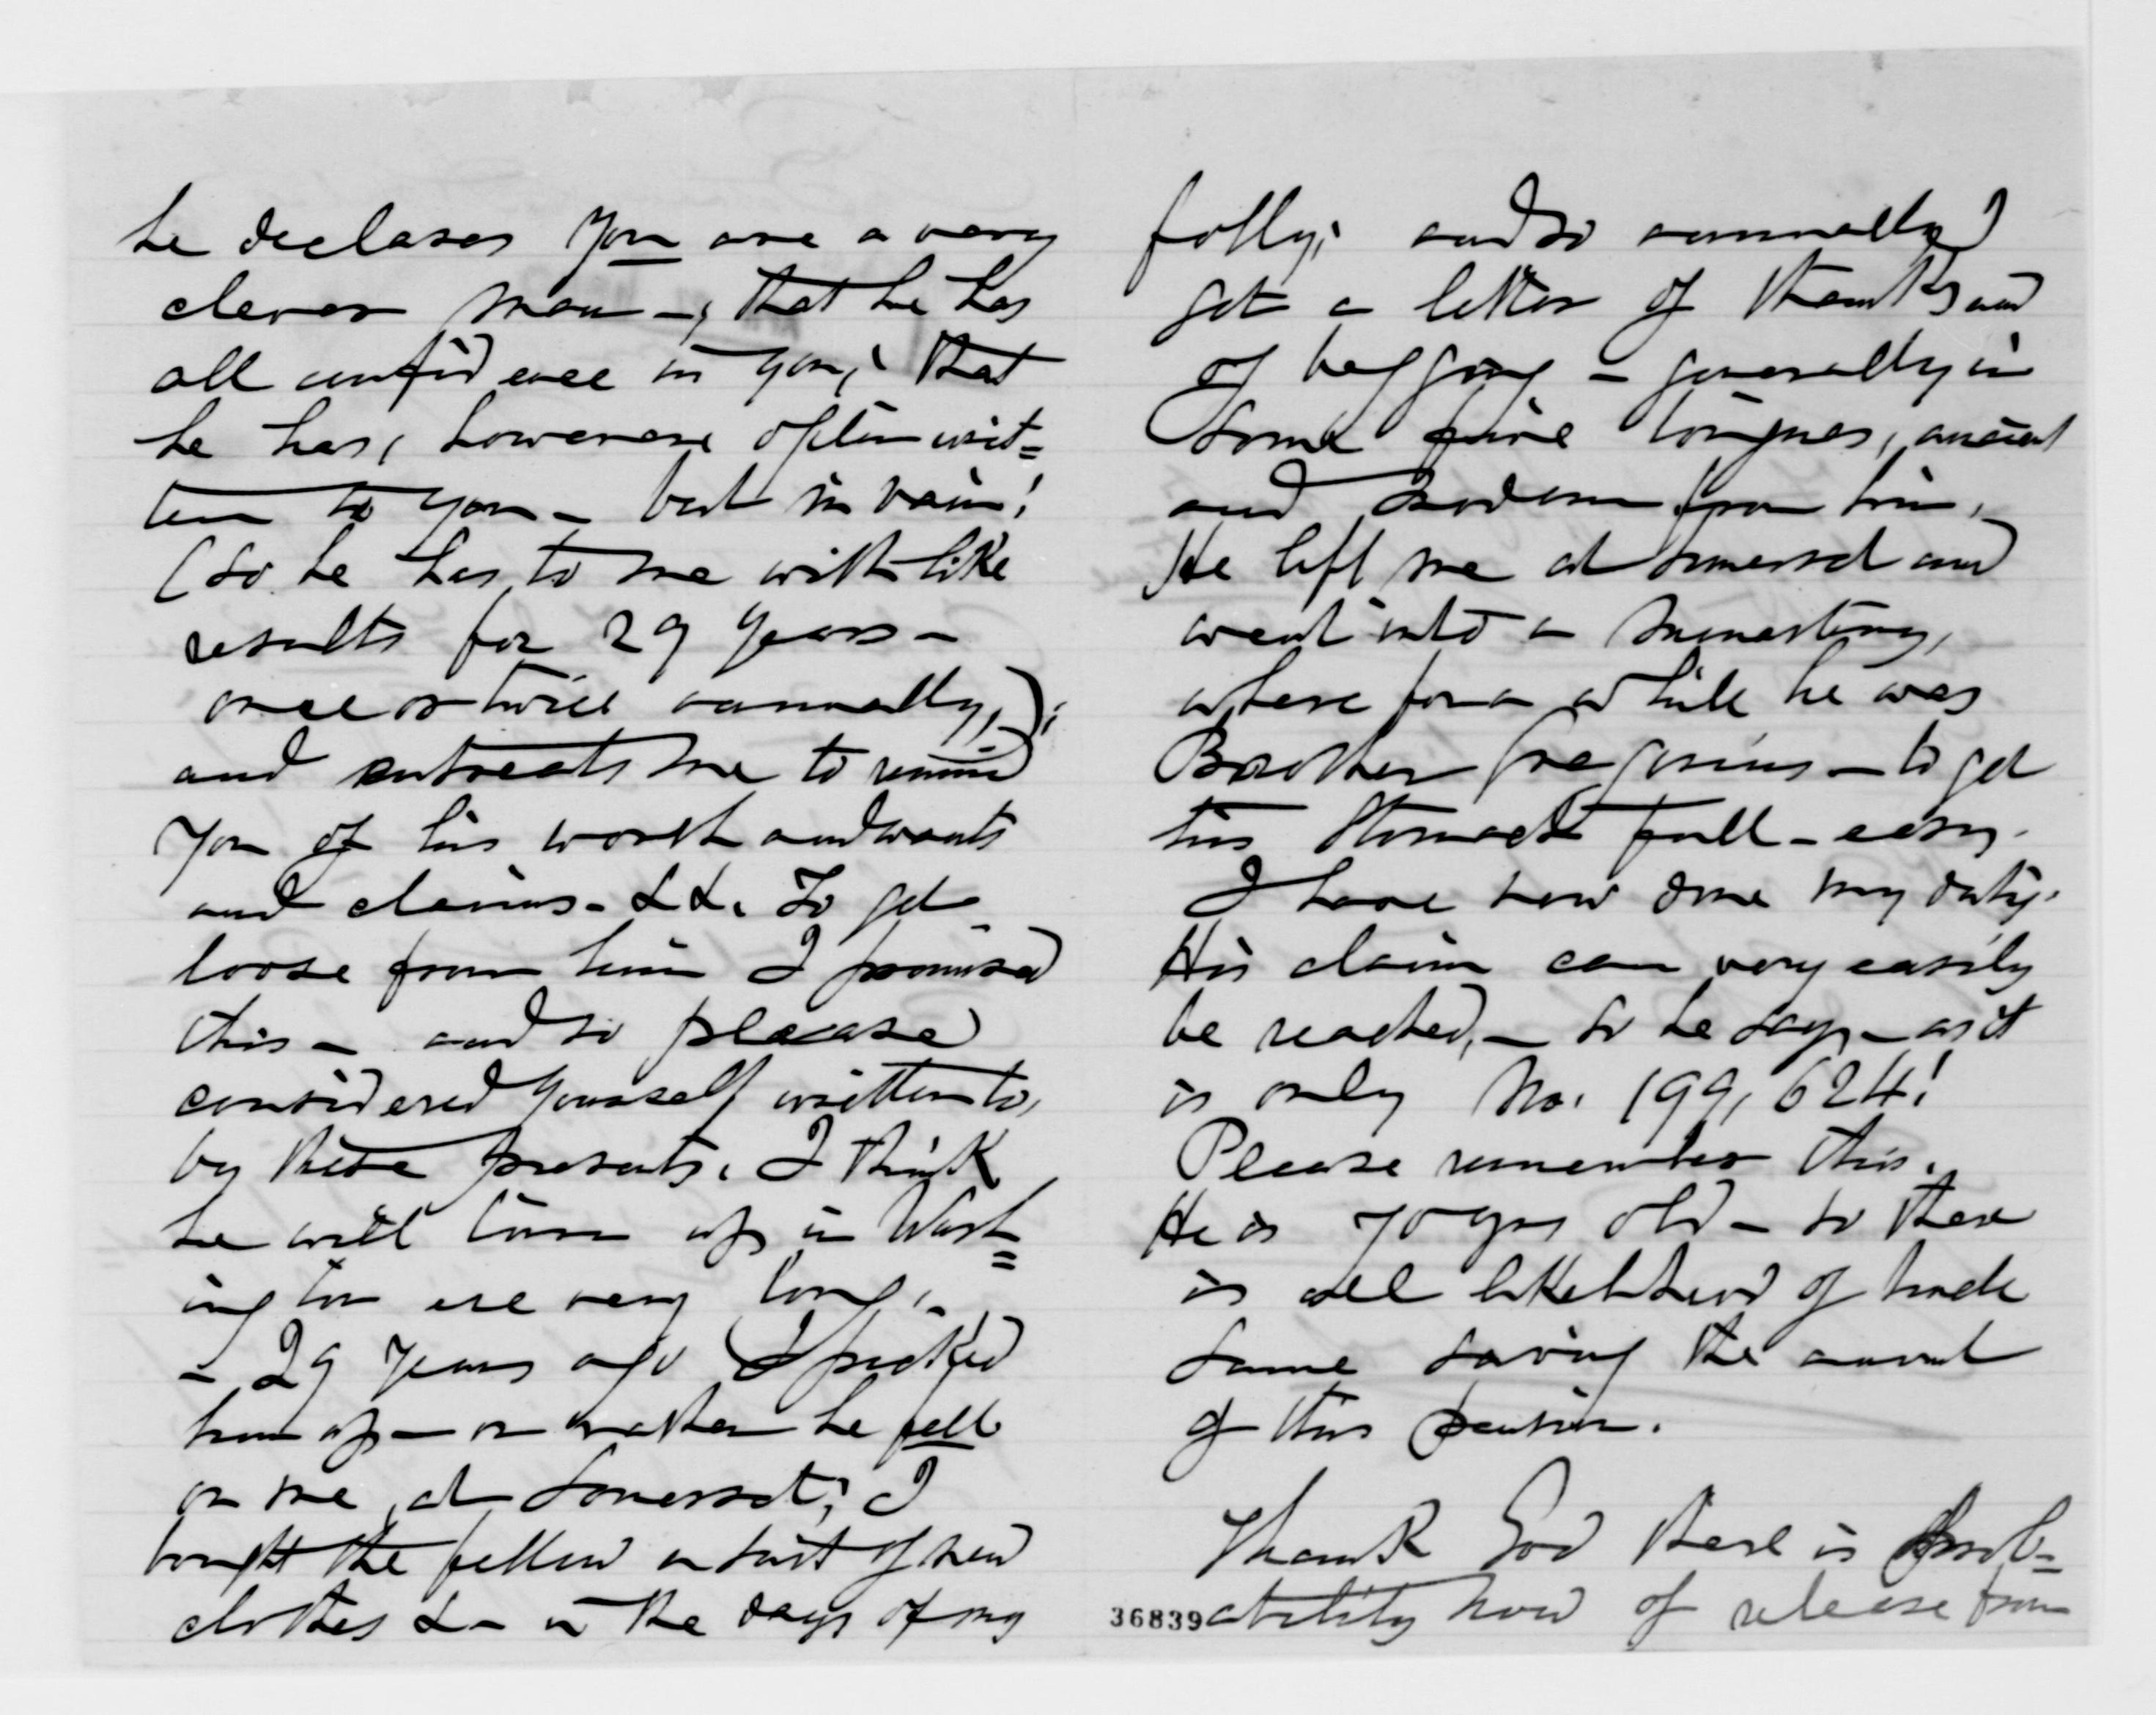 he declares you are a very
clever man —, that he has
all confidence in you; that
he has, however often writ=
ten to you — but in vain!
(so he has to me with like
results for 29 years —
once or twice annually,);
and entreats me to remind
you of his worth and wants
and claims. &&. To get
loose from him I promised
this — and so please
considered yourself written to,
by these presents. I think
he will turn up in Wash=
ington ere very long.
— 29 years ago I picked
him up — or rather he fell
on me, at Somerset; I
bought the fellow a suit of new
clothes &— in the days of my
folly; and so annually I
get a letter of thanks and
of begging — generally in
some five tongues, ancient
and modern from him.
He left me at Somerset and
went into a monastery,
where for a while he was
Brother Gregorius — to get
his stomach full — easy.
I have now done my duty.
His claim can very easily
be reached, — so he says — as it
is only No. 199,624!
Please remember this.
He is 70 yrs old — so there
is all likelihood of
same saving the amount
of this pension.
Thank God there is prob=
ability now of release from
36839